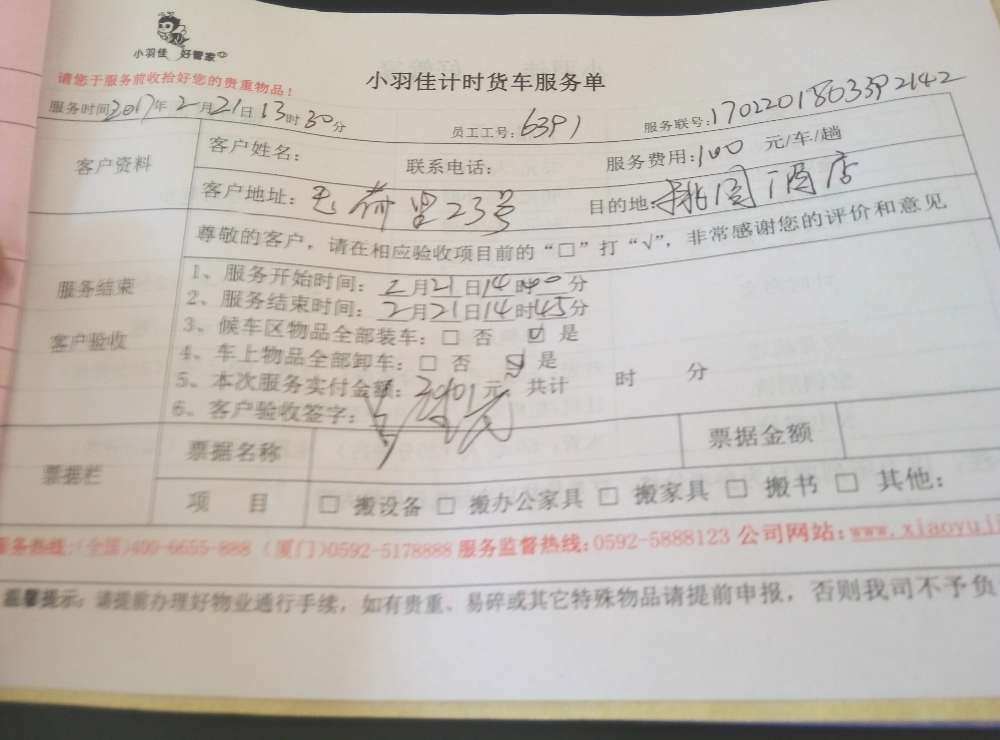 小羽佳 好管家
请您于服务前收拾好您的贵重物品!
小羽佳计时货车服务单
服务时间2017年2月21日13时30分 员工工号:6391 服务联号:1702201803392142
客户资料
客户姓名: 联系电话: 服务费用:100 元/车/趟
客户地址: 荷里23号 目的地: 酒店
尊敬的客户，请在相应验收项目前的“□”打“√”，非常感谢您的评价和意见
服务结束
客户验收
1、服务开始时间:2月21日14时00分
2、服务结束时间:2月21日14时45分
3、候车区物品全部装车: □ 否 ☑ 是
4、车上物品全部卸车: □ 否 ☑ 是
5、本次服务实付金额: 元，共计 时 分
6、客户验收签字:
票据栏
票据名称 票据金额
项 目 □ 搬设备 □ 搬办公家具 □ 搬家具 □ 搬书 □ 其他:
服务热线:(全国)400-6655-888 (厦门)0592-5178888 服务监督热线:0592-5888123 公司网站:www.xiaoyuji
温馨提示: 请提前办理好物业通行手续，如有贵重、易碎或其它特殊物品请提前申报，否则我司不予负